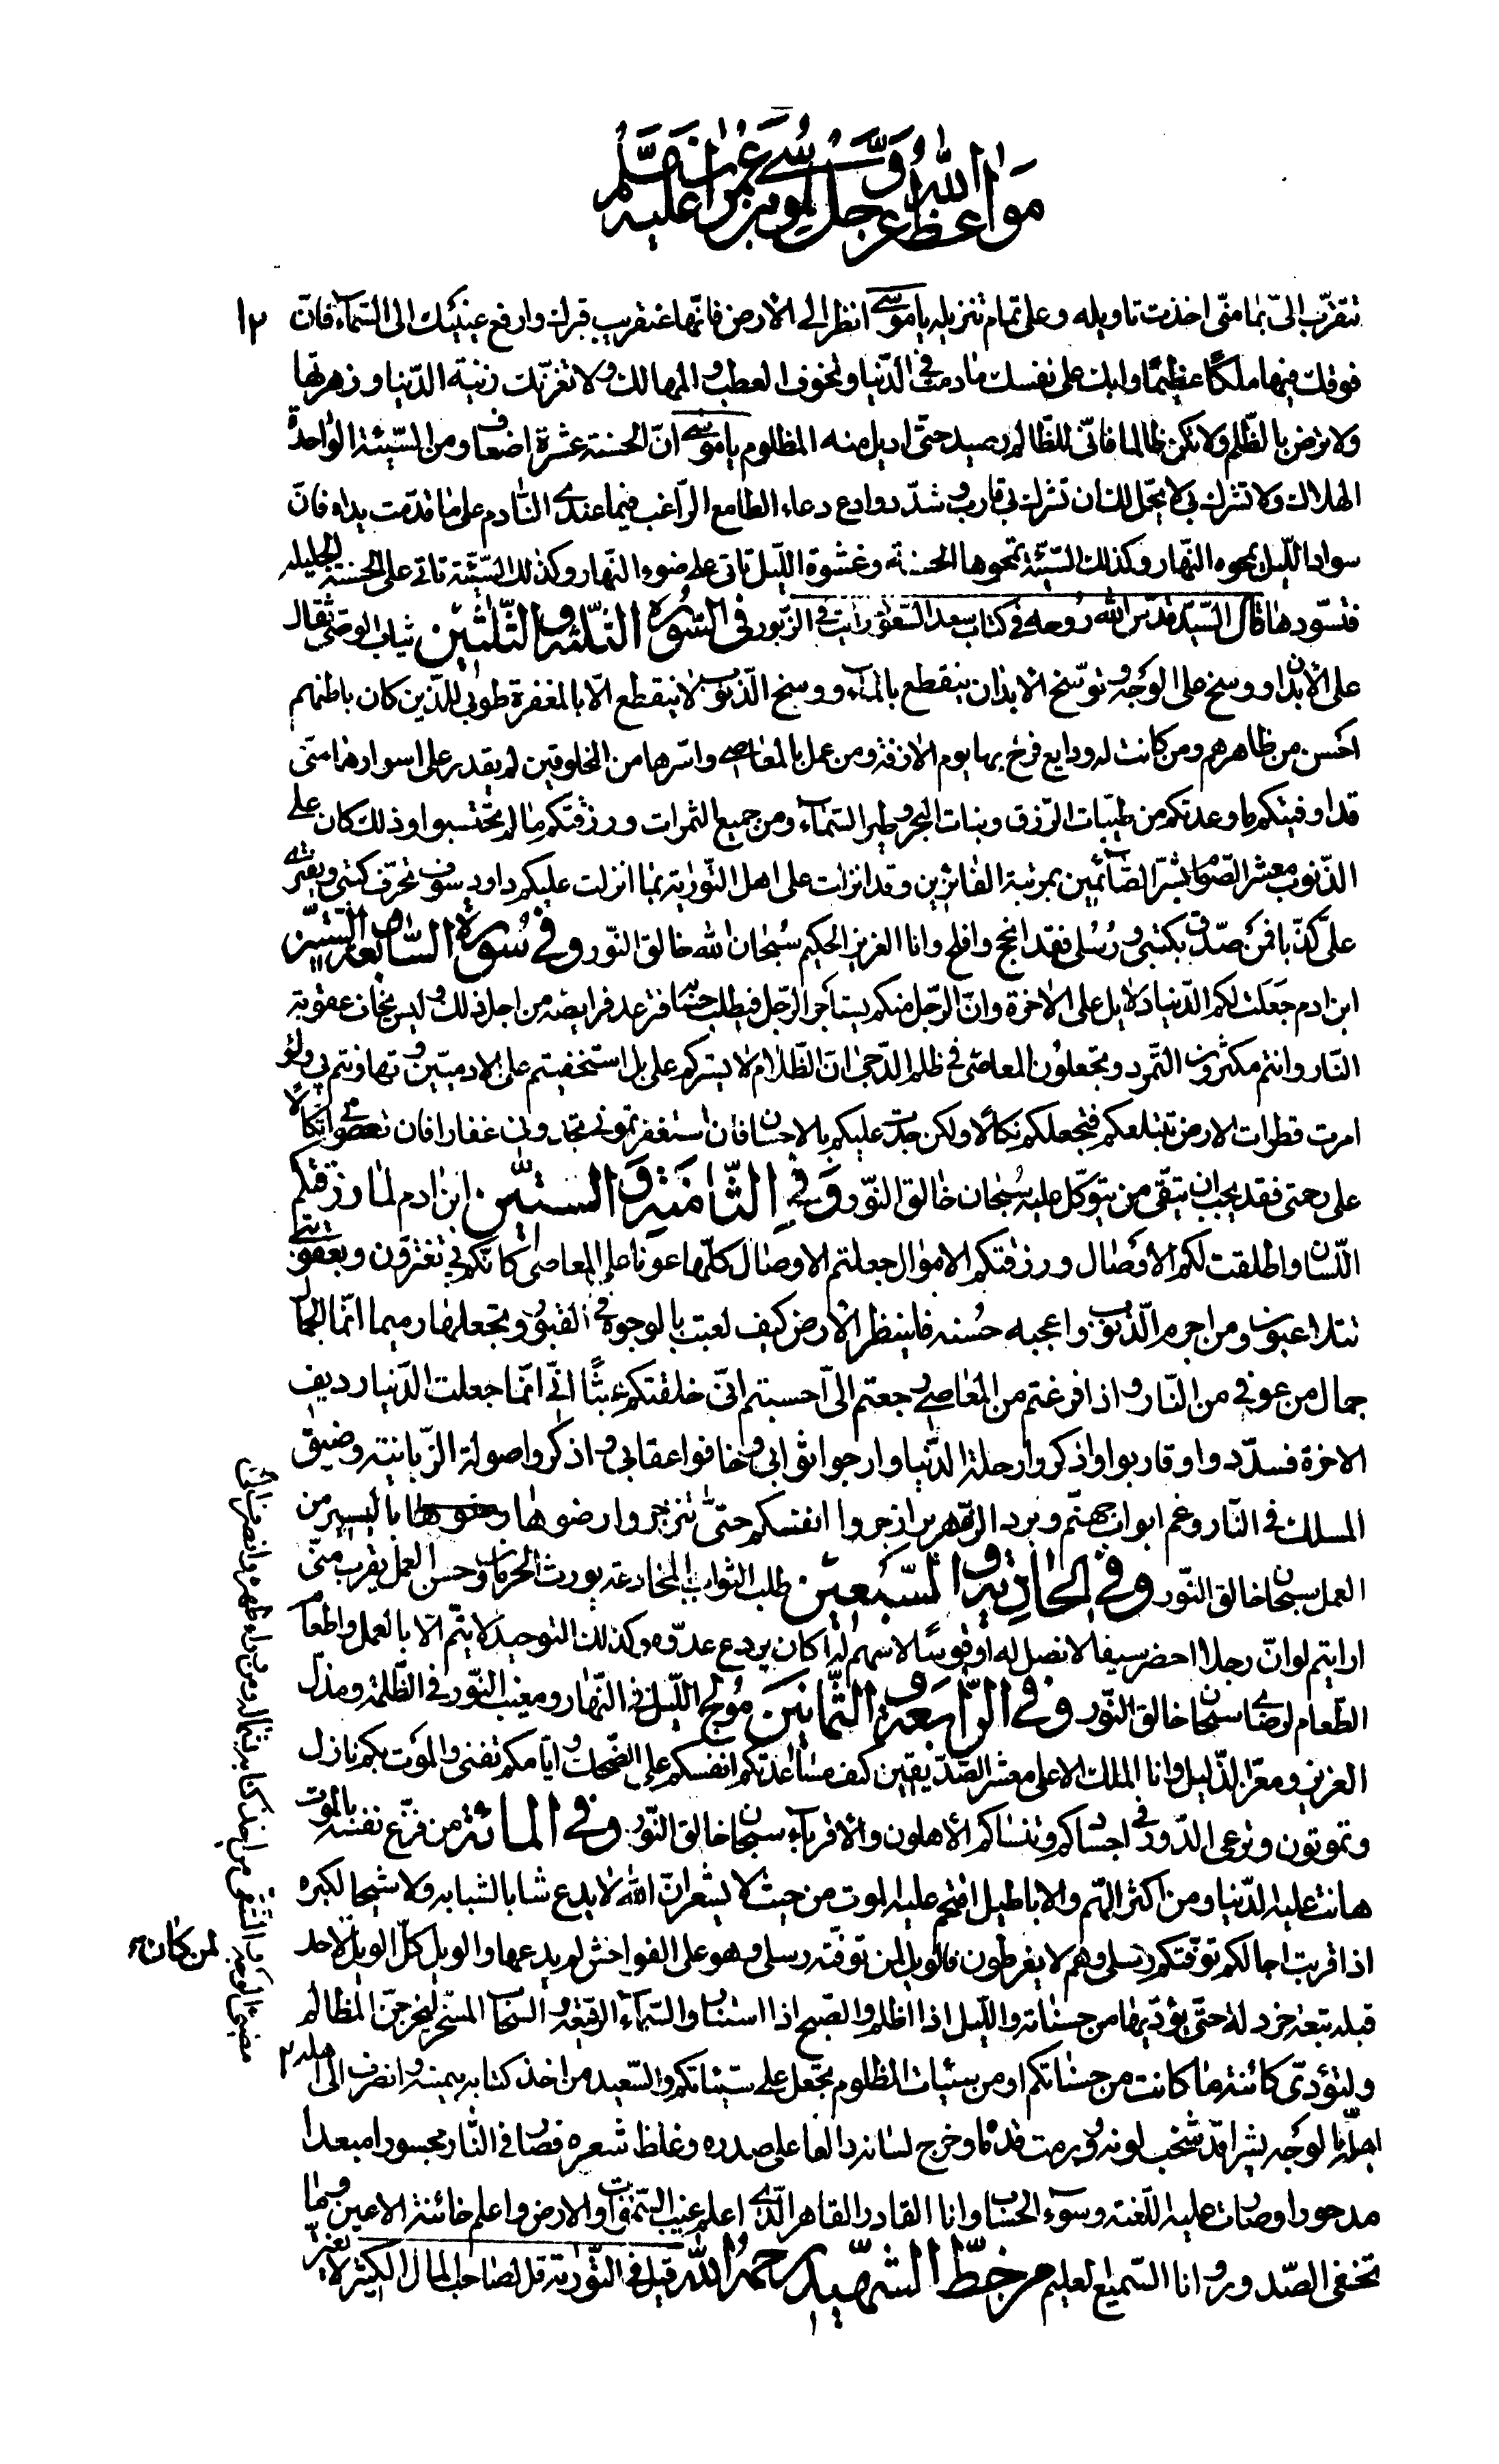 مواعظ الله عز وجل لموسى بن عمران عليه السلم
١٢
تتقرّب الىّ بما منّى اخذت تاويله وعلى تمام تنزيله يا موسى انظر الى الارض فانّها عنقريب قبرك وارفع عينيك الى السّماء فانّ
فوقك فيها ملكًا عظيمًا وابك على نفسك ما دمت في الدّنيا وتخوف العطب والمهالك ولا تغرّنّك زينة الدّنيا وزهرتها
ولا ترض بالظّلم ولا تكن ظالما فانّى للظّالم رصيد حتّى اديل منه المظلوم يا موسى انّ الحسنة عشرة اضعاف ومن السّيّئة الواحدة
الهلاك ولا تشرك بى لا يحلّ لك ان تشرك بى قارب وسدّد وادع دعاء الطّامع الرّاغب فيما عندى النّادم على ما قدّمت يداه فانّ
سواد اللّيل يمحوه النّهار وكذلك السّيّئة تمحوها الحسنة وعشوة اللّيل تاتى على ضوء النّهار وكذلك السّيّئة تاتى على الحسنة الجليلة
فتسوّدها قال السّيّد قدّس الله روحه في كتاب سعد السّعود رايت في الزّبور في السّورة الثّلثة والثّلثين ثياب العاصى ثقال
على الابدان ووسخ على الوجه وتوسّخ الابدان ينقطع بالماء ووسخ الذّنوب لا ينقطع الّا بالمغفرة طوبى للّذين كان باطنهم
احسن من ظاهرهم ومن كانت له ودايع فرح بها يوم الازفة ومن عمل بالمعاصى واسّرها من المخلوقين لم يقدر على اسرارها منّى
قد اوفيتكم ما وعدتكم من طيّبات الرّزق ونبات البحر وطير السّماء ومن جميع الثمرات ورزقتكم ما لم تحتسبوا وذلك كان على
الذّنوب معشر الصّوّام بشّر الصّائمين بمرتبة الفائزين وقد انزلت على اهل التّورية بما انزلت عليكم داود سوف تحرّف كتبى ويفترى
علىّ كذبا فمن صدّق بكتبى ورسلى فقد انجح وافلح وانا العزيز الحكيم سبحان الله خالق النّور وفى سورة السّابعة والستّين
ابن ادم جعلت لكم الدّنيا دلايل على الاخرة وانّ الرّجل منكم يستاجر الرّجل فيطلب حسابه فترعد فرايصه من اجل ذلك وليس يخاف عقوبة
النّار وانتم مكثرون التّمرد وتجعلون المعاصى في ظلم الدّجى انّ الظّلام لا يستركم علىّ بل استخفيتم على الادميّين وتهاونتم بى ولو
امرت قطرات الارض تبتلعكم فتجعلكم نكالا ولكن جدت عليكم بالاحسان فان استغفرتمونى تجدونى غفارا فان تعصونى اتّكالا
على رحمتى فقد يجب ان يتّقى من يتوكّل عليه سبحان خالق النّور وفى الثّامنة والستّين ابن ادم لما رزقتكم
اللّسان واطلقت لكم الاوصال ورزقتكم الاموال جعلتم الاوصال كلّها عونا على المعاصى كانّكم بى تغترّون وبعقوبتى
تتلاعبون ومن اجرم الذّنوب واعجبه حسنه فلينظر الارض كيف لعبت بالوجوه في القبور وتجعلها رميما انّما الجمال
جمال من عوفى من النّار واذا فرغتم من المعاصى رجعتم الىّ احسبتم انّى خلقتكم عبثًا انّى انّما جعلت الدّنيا رديف
الاخرة فسدّدوا وقاربوا واذكروا رحلة الدّنيا وارجوا ثوابى وخافوا عقابى واذكروا صولة الزّبانية وضيق
المسلك في النّار وغم ابواب جهنّم وبرد الزّمهرير ازجروا انفسكم حتّى تنزجر وارضوها باليسير من
العمل سبحان خالق النّور وفى الحادية والسّبعين طلب الثواب بالمخادعة يورث الحرمان وحسن العمل يقرب منّى
ارايتم لو انّ رجلا احضر سيفا لا نصل له او قوسًا لا سهم له اكان يردع عدوّه وكذلك التوحيد لا يتمّ الّا بالعمل واطعام
الطّعام لرضاى سبحان خالق النّور وفى الرّابعة والثّمانين مولج اللّيل في النّهار ومغيب النّور في الظّلمة ومذلّ
العزيز ومعزّ الذّليل وانا الملك الاعلى معشر الصّدّيقين كيف مساعدتكم انفسكم على الضّحك وايّامكم تفنى والموت بكم نازل
وتموتون وترعى الدّود في اجسادكم وتنساكم الاهلون والاقرباء سبحان خالق النّور وفى المائة من فزّع نفسه بالموت
هانت عليه الدّنيا ومن اكثر الهمّ والاباطيل اقتحم عليه الموت من حيث لا يشعر انّ الله لا يدع شابا لشبابه ولا شيخا لكبره
اذا قربت اجالكم توفّتكم رسلى وهم لا يفرطون فالويل لمن توفّته رسلى وهو على الفواحش لم يدعها والويل كلّ الويل لاحد
لمن كان
قبله تبعة خردلة حتّى يؤدّيها من حسناته واللّيل اذا اظلم والصّبح اذا استنار والسّماء الرّفيعة والسّحاب المسخّر ليخرجنّ المظالم
ولتؤدّى كائنة ما كانت من حسناتكم او من سيئات المظلوم تجعل على سيّئاتكم والسّعيد من اخذ كتابه بيمينه وانصرف الى
اهله الوجه بشر اقد شحب لونه وورمت قدماه وخرج لسانه دالعا على صدره وغلظ شعره فصار في النّار محسورا مبعدا
مدحورا وصارت عليه اللّعنة وسوء الحساب وانا القادر القاهر الّذى اعلم غيب السّموات والارض واعلم خائنة الاعين وما
تخفى الصّدور وانا السّميع العليم من خطّ الشّهيد رحمه الله قيل في التّورية قل لصاحب المال الكثير لا يغترّ